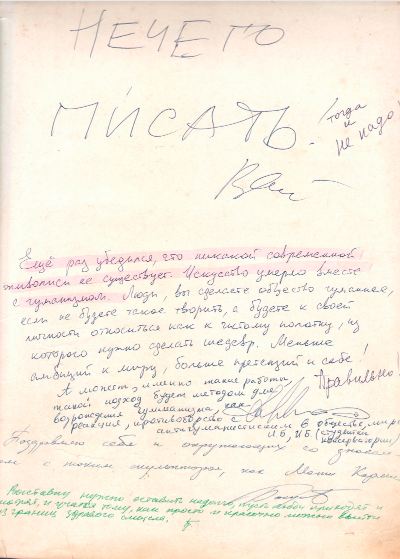 НЕЧЕГО
ПИСАТЬ!
тогда
и
не надо!
Ещё раз убедился, что никакой современной
живописи не существует. Искусство умерло вместе
с гуманизмом. Люди, вы сделаете общество гуманнее,
если не будете такое творить, а будете к своей
личности относиться как к чистому полотну, из
которого нужно сделать шедевр. Меньше
амбиций к миру, больше претензий к себе!
А может, именно такие работы,
такой подход будет методом для
возрождения гуманизма, как
реакция, и противоборство
антигуманистическим в обществе, мире
Правильно!
И.Б, И.Б (студентки
консерватории)
Поздравляю себя и окружающих со знаком
с таким художником, как
Выставку нужно оставить надолго, пускай приходят и
смотрят, и учатся тому, как просто и красочно можно выйти
из границ здравого смысла.